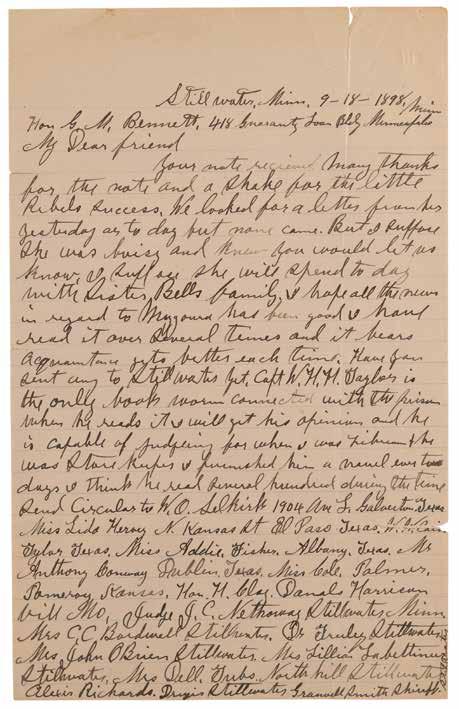 Still water, Minn. 9-18-1898,
Hon G. M. Bennett, 418 Guaranty Loan Bldg Minneapolis Minn
My Dear friend
Your note recieved Many thanks
for the note and a shake for the little
Rebels success. We looked for a letter from her
yesterday or to day but none came. But I suppose
she was buisy and knew you would let us
know, I suppose she will spend to day
with Sister Bells family, I hope all the news
in regard to has been good I have
read it over several times and it bears
acquaintance gets better each time. Have you
sent any to Still water yet. Capt W. H. H. Taylor is
the only book worm connected with the prison
when he reads it I will get his opinion and he
is capable of judgeing for when I was & he
was Store Keeper I furnished him a novel ever two
days I think he read several hundred during the time
Send Circular to W. O. Selkirk 1904 Galveston Texas
Miss Lida N. Kansas St El Paso Texas.
Texas, Miss Addie Fisher, Albany, Texas. Mr
Anthony Conway Dublin, Texas. Miss Cole. Palmer,
Pomeroy, Kansas, Hon. H. Clay. Daniels Harrison
vill Mo, Judge J. C. Nethaway Stillwater Minn
Mrs C. C. Bordwell Stillwater, Dr Stillwater
Mrs. John O Brien Stillwater, Mrs Lillian
Stillwater, Mrs Dell. North hill Stillwater
Alexis Richards. Stillwater Smith